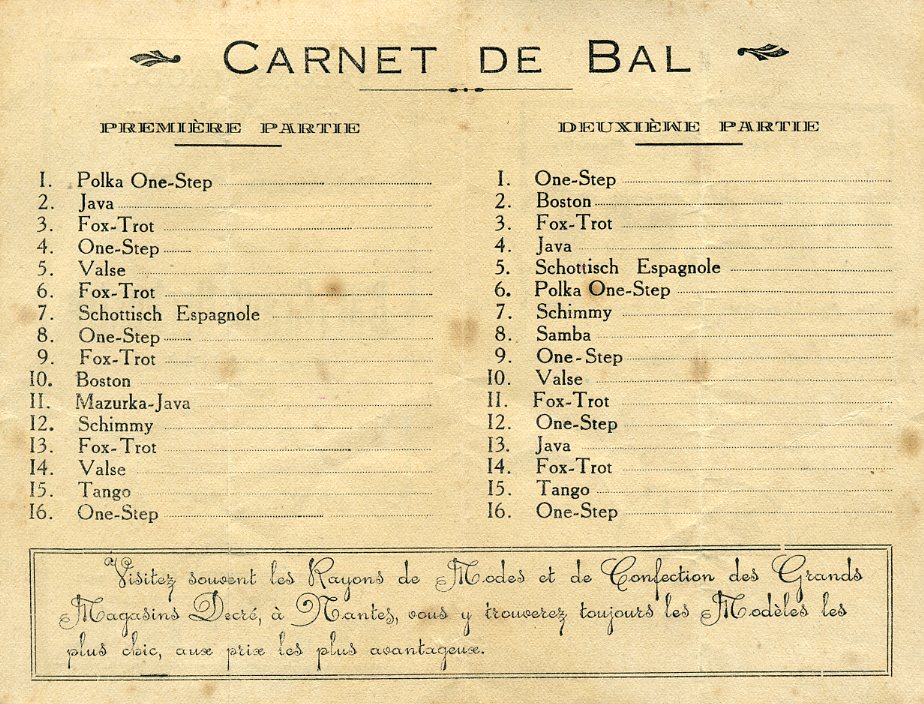 CARNET DE BAL
PREMIÈRE PARTIE
1. Polka One-Step
2. Java
3. Fox-Trot
4. One-Step
5. Valse
6. Fox-Trot
7. Schottisch Espagnole
8. One-Step
9. Fox-Trot
10. Boston
11. Mazurka-Java
12. Schimmy
13. Fox-Trot
14. Valse
15. Tango
16. One-Step
DEUXIÈME PARTIE
1. One-Step
2. Boston
3. Fox-Trot
4. Java
5. Schottisch Espagnole
6. Polka One-Step
7. Schimmy
8. Samba
9. One-Step
10. Valse
11. Fox-Trot
12. One-Step
13. Java
14. Fox-Trot
15. Tango
16. One-Step
Visitez souvent les Rayons de Modes et de Confection des Grands
Magasins Decré, à Nantes, vous y trouverez toujours les Modèles les
plus chic, aux prix les plus avantageux.